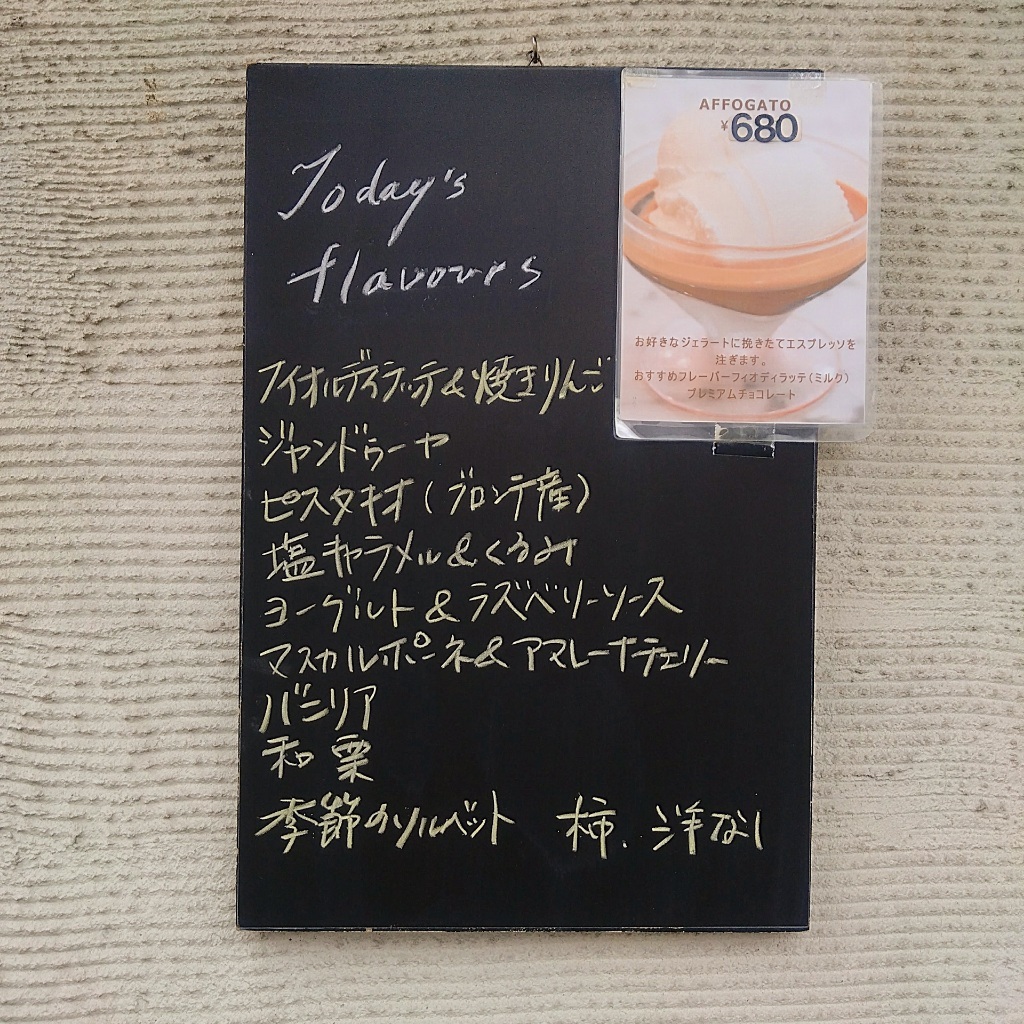 Today's
flavours
フィオルディラッテ&焼きりんご
ジャンドゥーヤ
ピスタキオ(ブロンテ産)
塩キャラメル&くるみ
ヨーグルト&ラズベリーソース
マスカルポーネ&アマレーナチェリー
バニリア
和栗
季節のソルベット 柿、洋なし
AFFOGATO
¥680
お好きなジェラートに挽きたてエスプレッソを
注ぎます。
おすすめフレーバーフィオディラッテ(ミルク)
プレミアムチョコレート